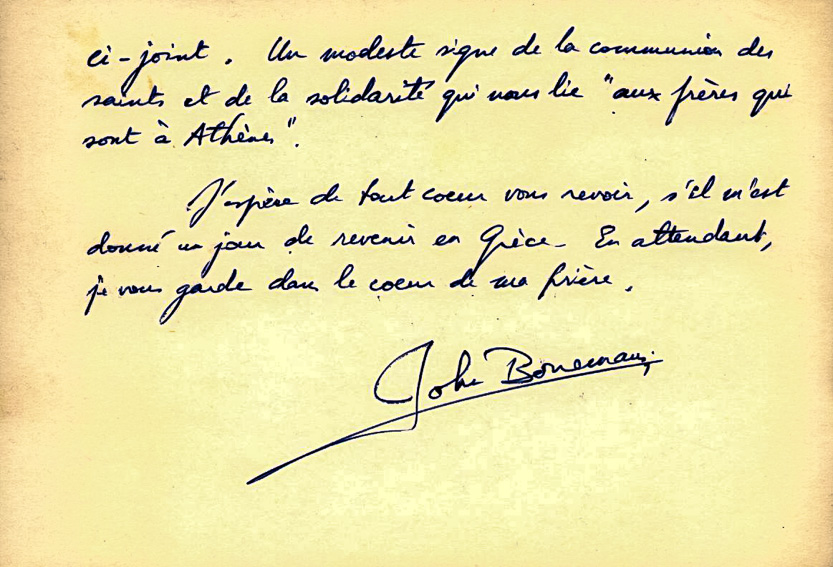 ci-joint. Un modeste signe de la communion des
saints et de la solidarité qui nous lie "aux frères qui
sont à Athènes".
J'espère de tout coeur vous revoir, s'il m'est
donné un jour de revenir en Grèce. En attendant,
je vous garde dans le coeur de ma prière.
John